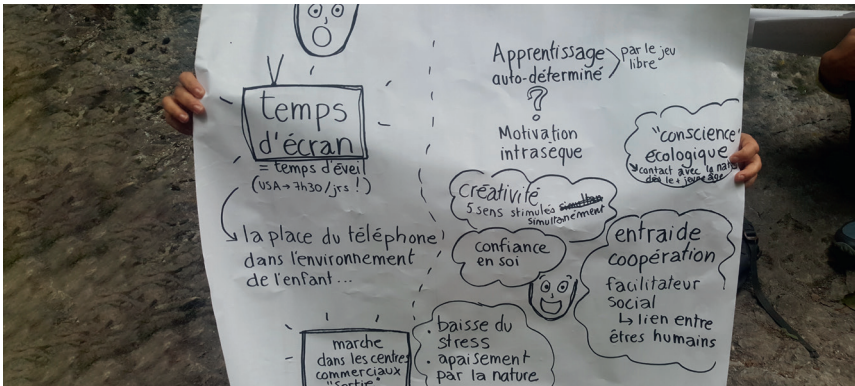 temps
d'écran
= temps d'éveil
(USA → 7h30/jrs !)
la place du téléphone
dans l'environnement
de l'enfant...
marche
dans les centres
commerciaux
"Sortie"
Apprentissage
auto-déterminé
par le jeu
libre
?
Motivation
intrasèque
"conscience"
écologique
contact avec la nat
dès le + jeune âge
créativité
5 sens stimulés
simultanément
confiance
en soi
entraide
coopération
facilitateur
social
↳ lien entre
êtres humains
. baisse du
stress
. apaisement
par la nature